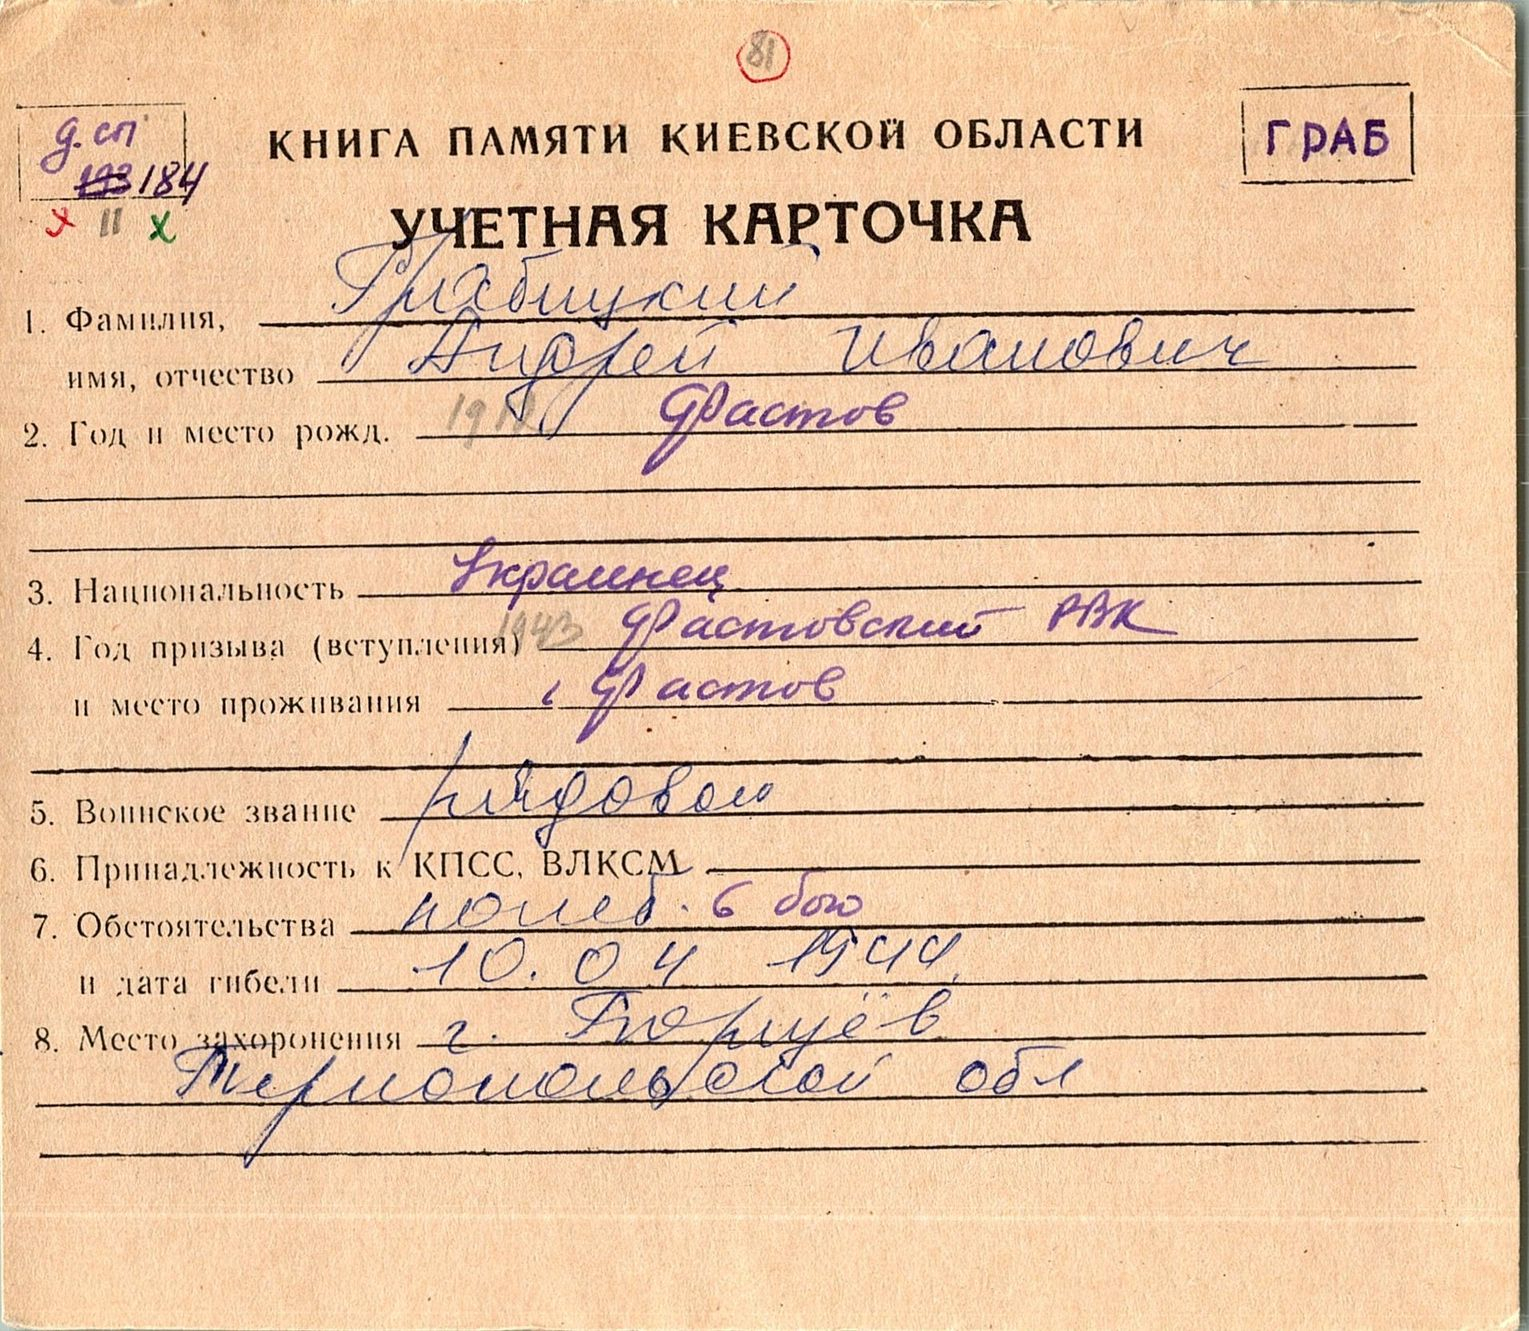 81
д. сп
193 184
х II х
КНИГА ПАМЯТИ КИЕВСКОЙ ОБЛАСТИ
ГРАБ
УЧЕТНАЯ КАРТОЧКА
1. Фамилия, Грабицкий
имя, отчество Андрей Иванович
2. Год и место рожд. Фастов
3. Национальность Украинец
4. Год призыва (вступления) 1943 Фастовский РВК
и место проживания г. Фастов
5. Воинское звание рядовой
6. Принадлежность к КПСС, ВЛКСМ
7. Обстоятельства погиб. в бою
и дата гибели 10.04 1944.
8. Место захоронения г. Борщёв
Тернопольской обл